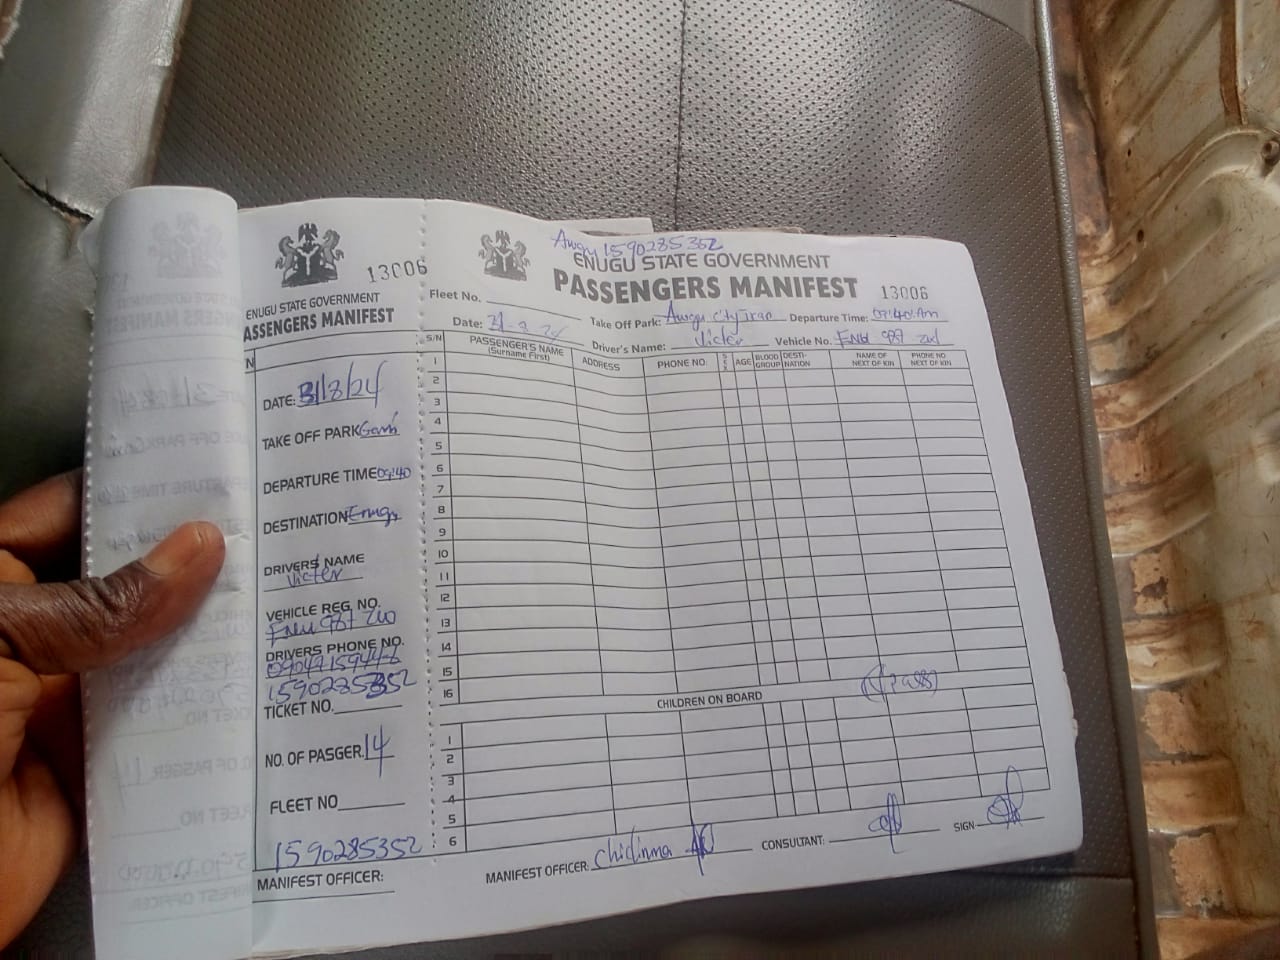 13006
ENUGU STATE GOVERNMENT
ASSENGERS MANIFEST
N
DATE: 31/8/24
TAKE OFF PARK
DEPARTURE TIME 09:40
DESTINATION Enugu
DRIVERS NAME
Victor
VEHICLE REG. NO.
DRIVERS PHONE NO.
1590285352
TICKET NO.
NO. OF PASGER. 14
FLEET NO
1590285352
MANIFEST OFFICER:
Awgu 1590285352
ENUGU STATE GOVERNMENT
PASSENGERS MANIFEST 13006
Fleet No. Take Off Park: Awgu City Departure Time: 09:40 Am
Date: 31-8-24 Driver's Name: Victor Vehicle No.
S/N PASSENGER'S NAME (Surname First) ADDRESS PHONE NO. SEX AGE BLOOD GROUP DESTI-NATION NAME OF NEXT OF KIN PHONE NO. NEXT OF KIN
1
2
3
4
5
6
7
8
9
10
11
12
13
14
15
16
CHILDREN ON BOARD
1
2
3
4
5
6
MANIFEST OFFICER: Chidinma CONSULTANT: SIGN